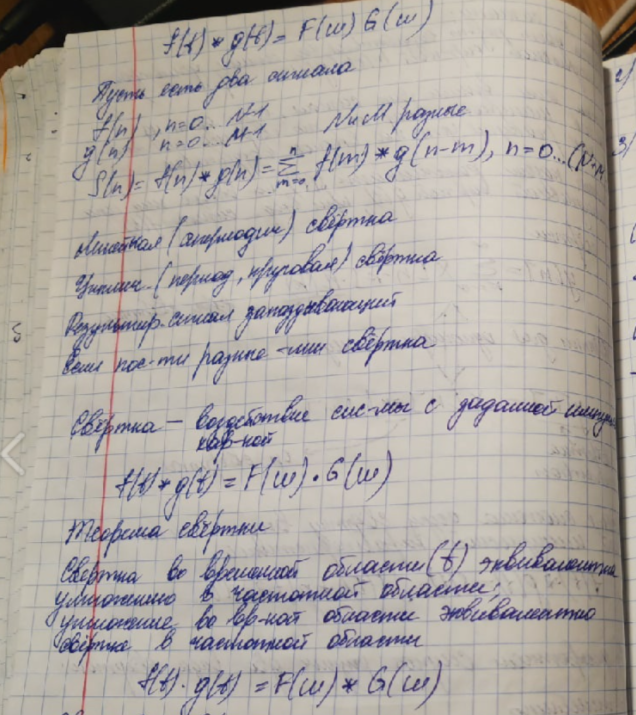 f(t) * g(t) = F(ω) G(ω)
Пусть есть два сигнала
f(n), n=0...N-1
g(n) n=0...M-1 N и M разные
S(n) = f(n) * g(n) = Σ m=0 n f(m) * g(n-m), n=0...(N+M
Линейная (апериодич) свёртка
Циклич. (период, круговая) свёртка
Результир. сигнал запаздывающий
Если пос-ти разные - лин свёртка
Свёртка — воздействие сис-мы с заданной импульс
хар-кой
f(t) * g(t) = F(ω) · G(ω)
Теорема свёртки
Свертка во временной области (t) эквивалентна
умножению в частотной области;
умножение во вр-ной области эквивалентно
свёртке в частотной области
f(t) · g(t) = F(ω) * G(ω)
2)
3)